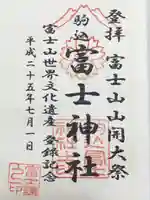 登拝 富士山山開大祭
駒込
富士神社
富士山世界文化遺産登録記念
平成二十五年七月一日